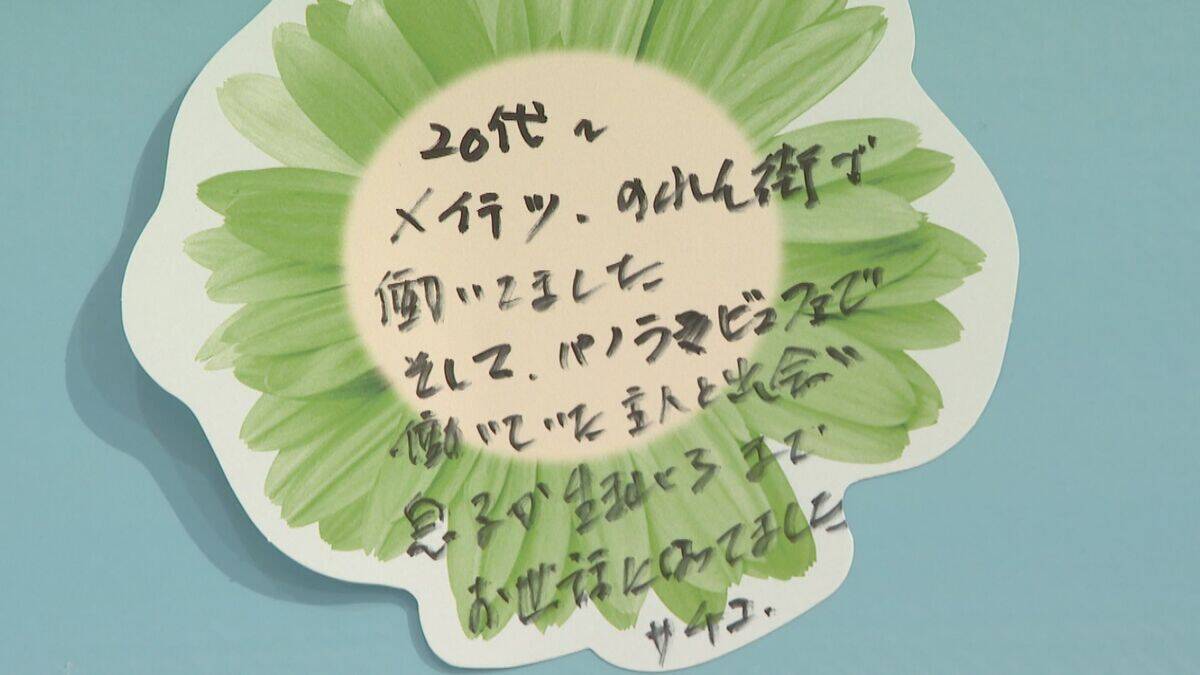 20代～
メイテツ、のれん街で
働いてました
そして、パノラマビュフェで
働いていた主人と出会い
息子が生まれるまで
お世話になってました
サチコ.